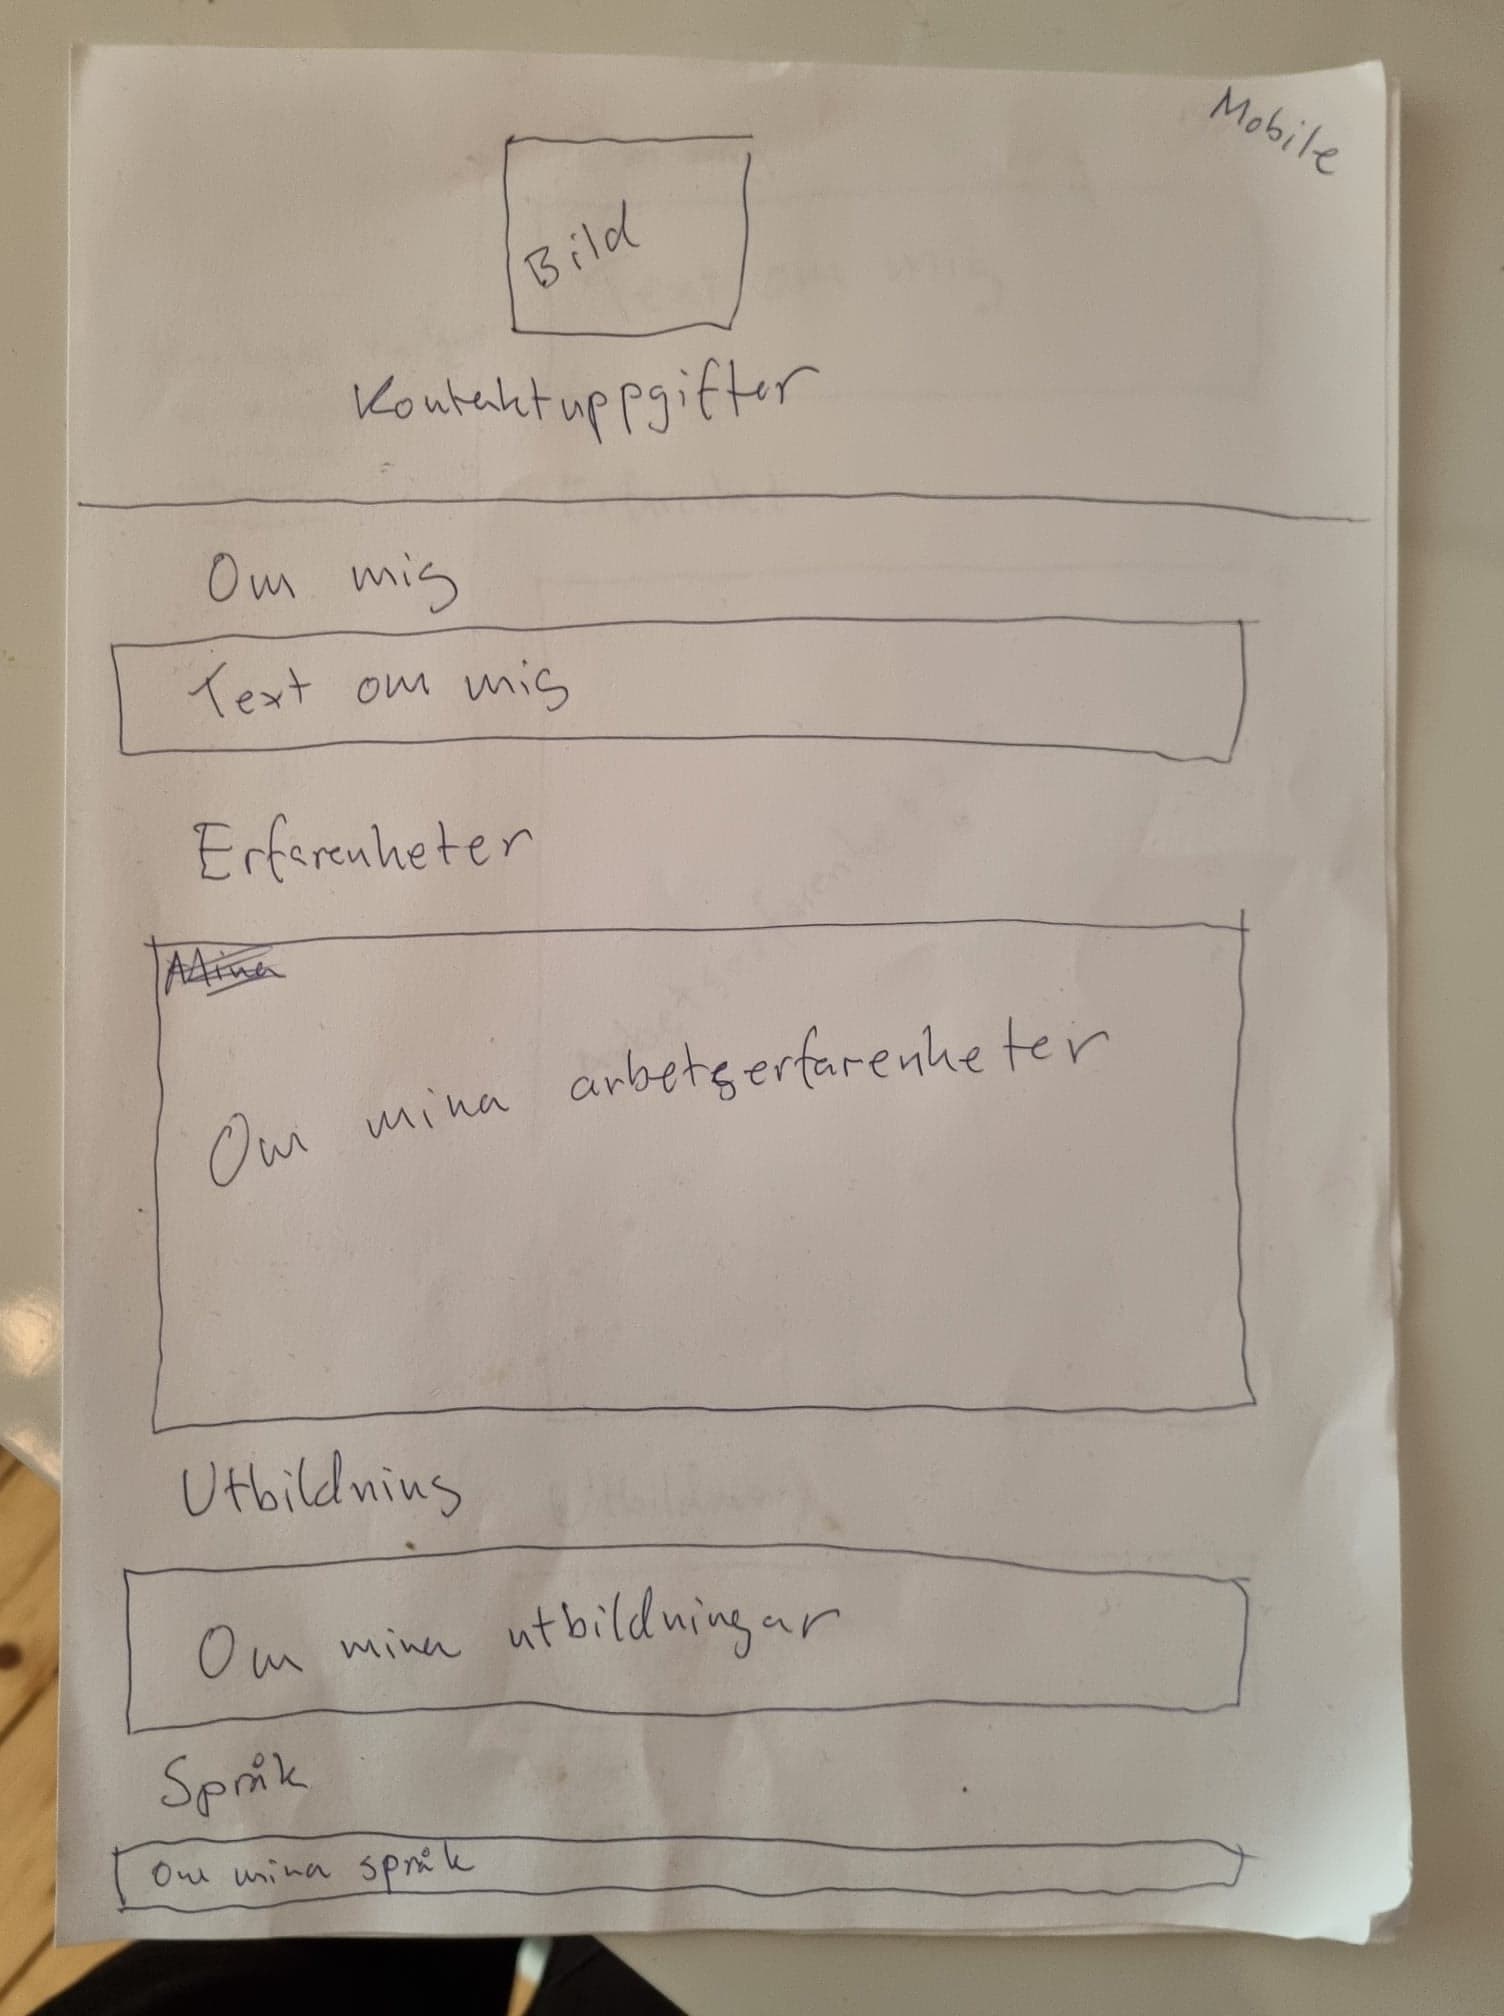 Mobile
Bild
Kontaktuppgifter
Om mig
Text om mig
Erfarenheter
Mina
Om mina arbetserfarenheter
Utbildning
Om mina utbildningar
Språk
Om mina språk